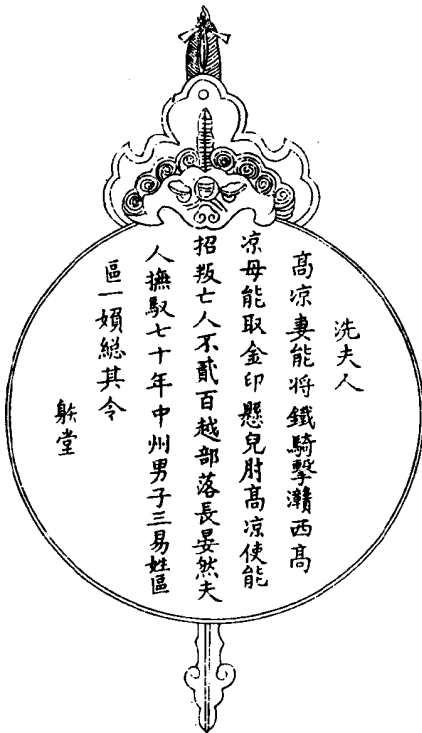 洗夫人
高凉妻能将鐵騎擊灨西高
凉母能取金印懸兒肘高凉使能
招叛亡人不貳百越部落長晏然夫
人撫馭七十年中州男子三易姓區
區一嬪総其令
躲堂